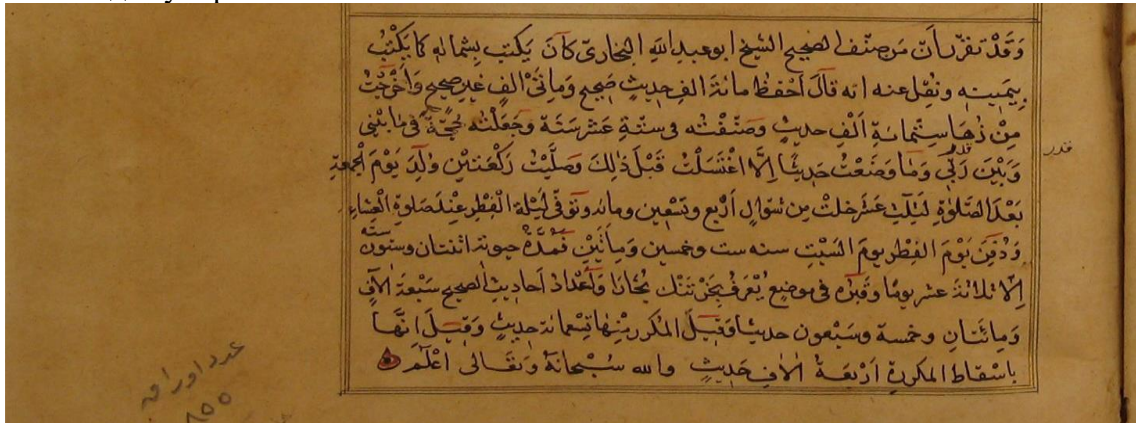 وَقَدْ تقرّر اَنّ مَن صنّف الصحيح الشيخ ابو عبد الله البخاريّ كانَ يَكتب بشماله كما يَكْتُبُ
بيَمينه ونُقِل عنه انه قالَ اَحْفَظُ مائة الف حديثٍ صَحيح ومأتَىْ الفٍ غير صَحيح وَاَخْرَجْتُ
مِنْ زُهَا سِتّمائةِ اَلْف حديثٍ وصَنّفْتُه فى ستّةِ عَشْر سَنَة وَجَعَلْتُه حُجّةً فى ما بَيْنى
وَبَيْنَ رَبّى وَمَا وَضَعْتُ حَديثًا اِلَّا اغْتَسَلْتُ قَبْلَ ذٰلِكَ وصَلَّيْتُ رَكْعَتيْن وُلِدَ يَوْمَ الْجُمعَةِ
قدر
بَعْدَ الصَّلوٰةِ لِثَلٰث عَشَر خلتْ مِن شَوّال اَرْبع وتسْعين ومائه وتوفّى لَيْلَةَ الْفِطْر عِنْدَ صَلوٰةِ الْعِشاءِ
وَدُفِنَ يَوْمَ الفِطْر يومَ السَّبْتِ سنه ست وخمسين وَمِأتَيْن فَمُدَّةُ حيوته اثنتان وستّون سَنَةً
اِلّا ثلاثة عشر يومًا وقَبْرُه فى موضِعٍ يُعْرَفُ بخَرْتَنْك بُخارَا وَاَعْدَادُ اَحاديث الصحيح سَبْعَة اٰلافٍ
وَمِائَتَانِ وخمسة وسَبْعون حديثًا وَقيلَ المُكرر مِنْها تِسْعمائة حديثٍ وَقيلَ انَّهَا
باسْقاط المكررة اَرْبعَة اٰلاف حَديثٍ والله سُبْحانهُ وَتَعَالى اَعْلَمُ
عدد اوراق
٨٥٥